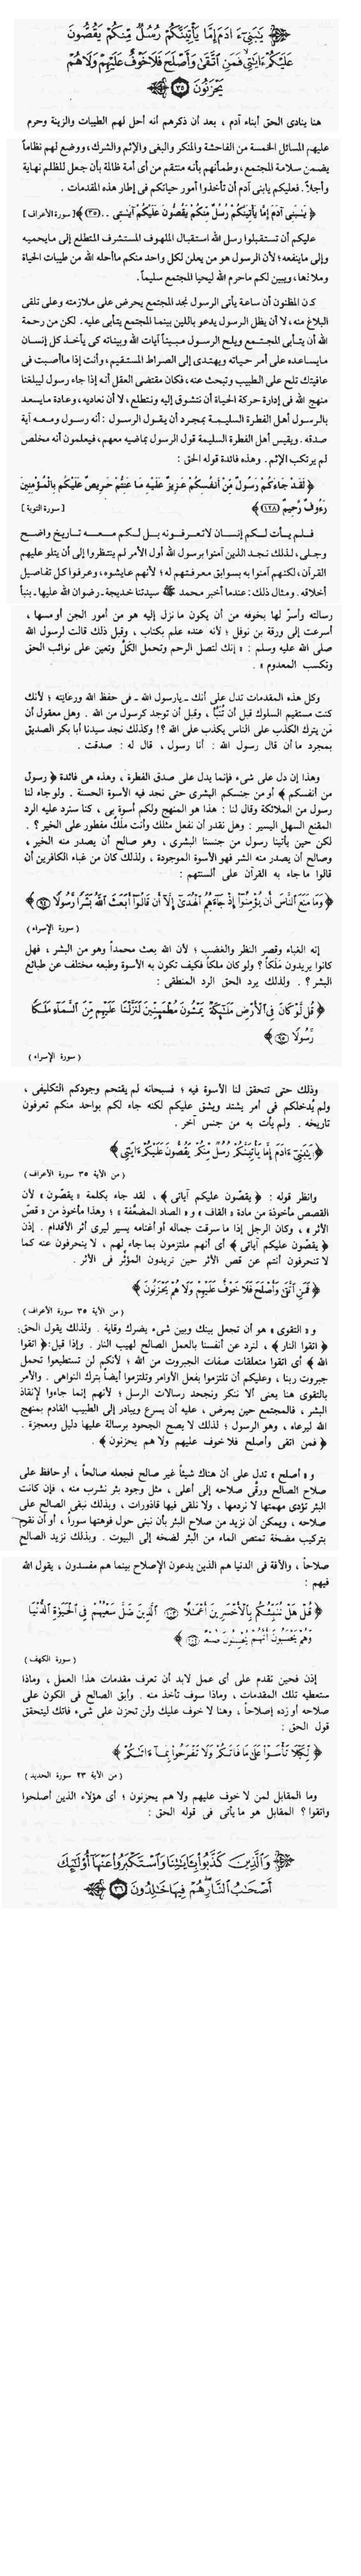 يَٰبَنِىٓ ءَادَمَ إِمَّا يَأْتِيَنَّكُمْ رُسُلٌ مِّنكُمْ يَقُصُّونَ
عَلَيْكُمْ ءَايَٰتِى فَمَنِ ٱتَّقَىٰ وَأَصْلَحَ فَلَا خَوْفٌ عَلَيْهِمْ وَلَا هُمْ
يَحْزَنُونَ ٣٥
هنا ينادى الحق أبناء آدم ، بعد أن ذكرهم أنه أحل لهم الطيبات والزينة وحرم
عليهم المسائل الخمسة من الفاحشة والمنكر والبغى والإثم والشرك، ووضع لهم نظاماً
يضمن سلامة المجتمع، وطمأنهم بأنه منتقم من أى أمة ظالمة بأن جعل للظلم نهاية
وأجلاً. فعليكم يابنى آدم أن تأخذوا أمور حياتكم فى إطار هذه المقدمات .
﴿ يَٰبَنِى آدَمَ إِمَّا يَأْتِيَنَّكُمْ رُسُلٌ مِّنكُمْ يَقُصُّونَ عَلَيْكُمْ آيَٰتِى .. (٣٥) ﴾ [ سورة الأعراف ]
عليكم أن تستقبلوا رسل الله استقبال الملهوف المستشرف المتطلع إلى مايحميه
وإلى ماينفعه؛ لأن الرسول هو من يعلن لكل واحد منكم ماأحله الله من طيبات الحياة
وملاذها، ويبين لكم ماحرم الله ليحيا المجتمع سليماً.
كان المظنون أن ساعة يأتى الرسول نجد المجتمع يحرص على ملازمته وعلى تلقى
البلاغ منه، لا أن يظل الرسول يدعو باللين بينما المجتمع يتأبى عليه. لكن من رحمة
الله أن يتأبى المجتمع ويلح الرسول مبيناً آيات الله وبيناته كى يأخذ كل إنسان
مايساعده على أمر حياته ويهتدى إلى الصراط المستقيم، وأنت إذا ماأصبت فى
عافيتك تلح على الطبيب وتبحث عنه، فكان مقتضى العقل أنه إذا جاء رسول ليبلغنا
منهج الله فى إدارة حركة الحياة أن نتشوق إليه ونتطلع، لا أن نعاديه، وعادة مايسعد
بالرسول أهل الفطرة السليمة بمجرد أن يقول الرسول: أنه رسول ومعه آية
صدقه. ويقيس أهل الفطرة السليمة قول الرسول بماضيه معهم، فيعلمون أنه مخلص
لم يرتكب الإثم. وهذه فائدة قوله الحق :
﴿ لَقَدْ جَاءَكُمْ رَسُولٌ مِّنْ أَنفُسِكُمْ عَزِيزٌ عَلَيْهِ مَا عَنِتُّمْ حَرِيصٌ عَلَيْكُم بِالْمُؤْمِنِينَ
رَءُوفٌ رَّحِيمٌ (١٢٨) ﴾ [ سورة التوبة ]
فلم يأت لكم إنسان لاتعرفونه بل لكم معه تاريخ واضح
وجلى، لذلك نجد الذين آمنوا برسول الله أول الأمر لم ينتظروا إلى أن يتلو عليهم
القرآن، لكنهم آمنوا به بسوابق معرفتهم له؛ لأنهم عايشوه، وعرفوا كل تفاصيل
أخلاقه. ومثال ذلك: عندما أخبر محمد ﷺ سيدتنا خديجة ـ رضوان الله عليها ـ بنبأ
رسالته وأسرّ لها بخوفه من أن يكون ما نزل إليه هو من أمور الجن أو مسها ،
أسرعت إلى ورقة بن نوفل ؛ لأنه عنده علم بكتاب ، وقبل ذلك قالت لرسول الله
صلى الله عليه وسلم : « إنك لتصل الرحم وتحمل الكَلَّ وتعين على نوائب الحق
وتكسب المعدوم » .
وكل هذه المقدمات تدل على أنك ـ يارسول الله ـ فى حفظ الله ورعايته ؛ لأنك
كنت مستقيم السلوك قبل أن تُنَبَّأ ، وقبل أن توجد كرسول من الله . وهل معقول أن
مَن يترك الكذب على الناس يكذب على الله ؟! وكذلك نجد سيدنا أبا بكر الصديق
بمجرد ما أن قال رسول الله : أنا رسول ، قال له : صدقت .
وهذا إن دل على شىء فإنما يدل على صدق الفطرة ، وهذه هى فائدة ﴿ رسول
من أنفسكم ﴾ أو من جنسكم البشرى حتى نجد فيه الأسوة الحسنة . ولو جاء لنا
رسول من الملائكة وقال لنا : هذا هو المنهج ولكم أسوة بى ، كنا سنرد عليه الرد
المقنع السهل اليسير : وهل نقدر أن نفعل مثلك وأنت ملَك مفطور على الخير ؟ .
لكن حين يأتينا رسول من جنسنا البشرى ، وهو صالح أن يصدر منه الخير ،
وصالح أن يصدر منه الشر فهو الأسوة الموجودة ، ولذلك كان من غباء الكافرين أن
قالوا ما جاء به القرآن على ألسنتهم :
﴿ وَمَا مَنَعَ ٱلنَّاسَ أَن يُؤْمِنُوٓا۟ إِذْ جَآءَهُمُ ٱلْهُدَىٰٓ إِلَّآ أَن قَالُوٓا۟ أَبَعَثَ ٱللَّهُ بَشَرًا رَّسُولًا ٩٤ ﴾
( سورة الإسراء )
إنه الغباء وقصر النظر والغضب ؛ لأن الله بعث محمداً وهو من البشر ، فهل
كانوا يريدون مَلَكاً ؟ ولو كان ملكاً فكيف تكون به الأسوة وطبعه مختلف عن طبائع
البشر ؟ . ولذلك يرد الحق الرد المنطقى :
﴿ قُل لَّوْ كَانَ فِى ٱلْأَرْضِ مَلَٰٓئِكَةٌ يَمْشُونَ مُطْمَئِنِّينَ لَنَزَّلْنَا عَلَيْهِم مِّنَ ٱلسَّمَآءِ مَلَكًا
رَّسُولًا ٩٥ ﴾
( سورة الإسراء )
وذلك حتى تتحقق لنا الأسوة فيه ؛ فسبحانه لم يقتحم وجودكم التكليفى ،
ولم يُدخلكم فى أمر يشتد ويشق عليكم لكنه جاء لكم بواحد منكم تعرفون
تاريخه . ولم يأت به من جنس آخر .
﴿ يَٰبَنِىٓ ءَادَمَ إِمَّا يَأْتِيَنَّكُمْ رُسُلٌ مِّنكُمْ يَقُصُّونَ عَلَيْكُمْ ءَايَٰتِى ﴾
( من الآية ٣٥ سورة الأعراف )
وانظر قوله : ﴿ يقصّون عليكم آياتى ﴾ ، لقد جاء بكلمة « يقصّون » لأن
القصص مأخوذة من مادة « القاف » و« الصاد المضعَّفة » ؛ وهذا مأخوذ من « قصّ
الأثر » ، وكان الرجل إذا ما سرقت جماله أو أغنامه يسير ليرى أثر الأقدام . إذن
﴿ يقصّون عليكم آياتى ﴾ أى أنهم ملتزمون بما جاء لهم ، لا ينحرفون عنه كما
لا تنحرفون أنتم عن قص الأثر حين تريدون المؤثّر فى الأثر .
﴿ فَمَنِ ٱتَّقَىٰ وَأَصْلَحَ فَلَا خَوْفٌ عَلَيْهِمْ وَلَا هُمْ يَحْزَنُونَ ﴾
( من الآية ٣٥ سورة الأعراف )
و« التقوى » هو أن تجعل بينك وبين شىء يضرك وقاية . ولذلك يقول الحق:
﴿ اتقوا النار ﴾ ، لنرد عن أنفسنا بالعمل الصالح لهيب النار . وإذا قيل:﴿ اتقوا
الله ﴾ أى اتقوا متعلقات صفات الجبروت من الله ؛ لأنكم لن تستطيعوا تحمل
جبروت ربنا ، وعليكم أن تلتزموا بفعل الأوامر وتلتزموا أيضاً بترك النواهى . والأمر
بالتقوى هنا يعنى ألا ننكر ونجحد رسالات الرسل ؛ لأنهم إنما جاءوا لإنقاذ
البشر ، فالمجتمع حين يمرض ، عليه أن يسرع ويبادر إلى الطبيب القادم بمنهج
الله ليرعاه ، وهو الرسول ؛ لذلك لا يصح الجحود برسالة عليها دليل ومعجزة .
﴿ فمن اتقى وأصلح فلا خوف عليهم ولا هم يحزنون ﴾ .
و« أصلح » تدل على أن هناك شيئاً غير صالح فجعله صالحاً ، أو حافظ على
صلاح الصالح ورقَّى صلاحه إلى أعلى ، مثل وجود بئر نشرب منه ، فإن كانت
البئر تؤدى مهمتها لا نردمها ، ولا نلقى فيها قاذورات ، وبذلك نبقى الصالح على
صلاحه ، ويمكن أن نزيد من صلاح البئر بأن نبنى حول فوهتها سوراً ، أو أن نقوم
بتركيب مضخة تمتص الماء من البئر لضخه إلى البيوت . وبذلك نزيد الصالح
صلاحاً ، والآفة فى الدنيا هم الذين يدعون الإصلاح بينما هم مفسدون ، يقول الله
فيهم :
﴿ قُلْ هَلْ نُنَبِّئُكُم بِٱلْأَخْسَرِينَ أَعْمَٰلًا ١٠٣ ٱلَّذِينَ ضَلَّ سَعْيُهُمْ فِى ٱلْحَيَوٰةِ ٱلدُّنْيَا
وَهُمْ يَحْسَبُونَ أَنَّهُمْ يُحْسِنُونَ صُنْعًا ١٠٤ ﴾
( سورة الكهف )
إذن فحين تقدم على أى عمل لابد أن تعرف مقدمات هذا العمل ، وماذا
ستعطيه تلك المقدمات ، وماذا سوف تأخذ منه . وأبق الصالح فى الكون على
صلاحه أو زده إصلاحاً ، وهنا لا خوف عليك ولن تحزن على شىء فاتك ليتحقق
قول الحق :
﴿ لِّكَيْلَا تَأْسَوْا۟ عَلَىٰ مَا فَاتَكُمْ وَلَا تَفْرَحُوا۟ بِمَآ ءَاتَىٰكُمْ ﴾
( من الآية ٢٣ سورة الحديد )
وما المقابل لمن لا خوف عليهم ولا هم يحزنون ؛ أى هؤلاء الذين أصلحوا
واتقوا ؟ المقابل هو ما يأتى فى قوله الحق :
وَٱلَّذِينَ كَذَّبُوا۟ بِـَٔايَٰتِنَا وَٱسْتَكْبَرُوا۟ عَنْهَآ أُو۟لَٰٓئِكَ
أَصْحَٰبُ ٱلنَّارِ هُمْ فِيهَا خَٰلِدُونَ ٣٦